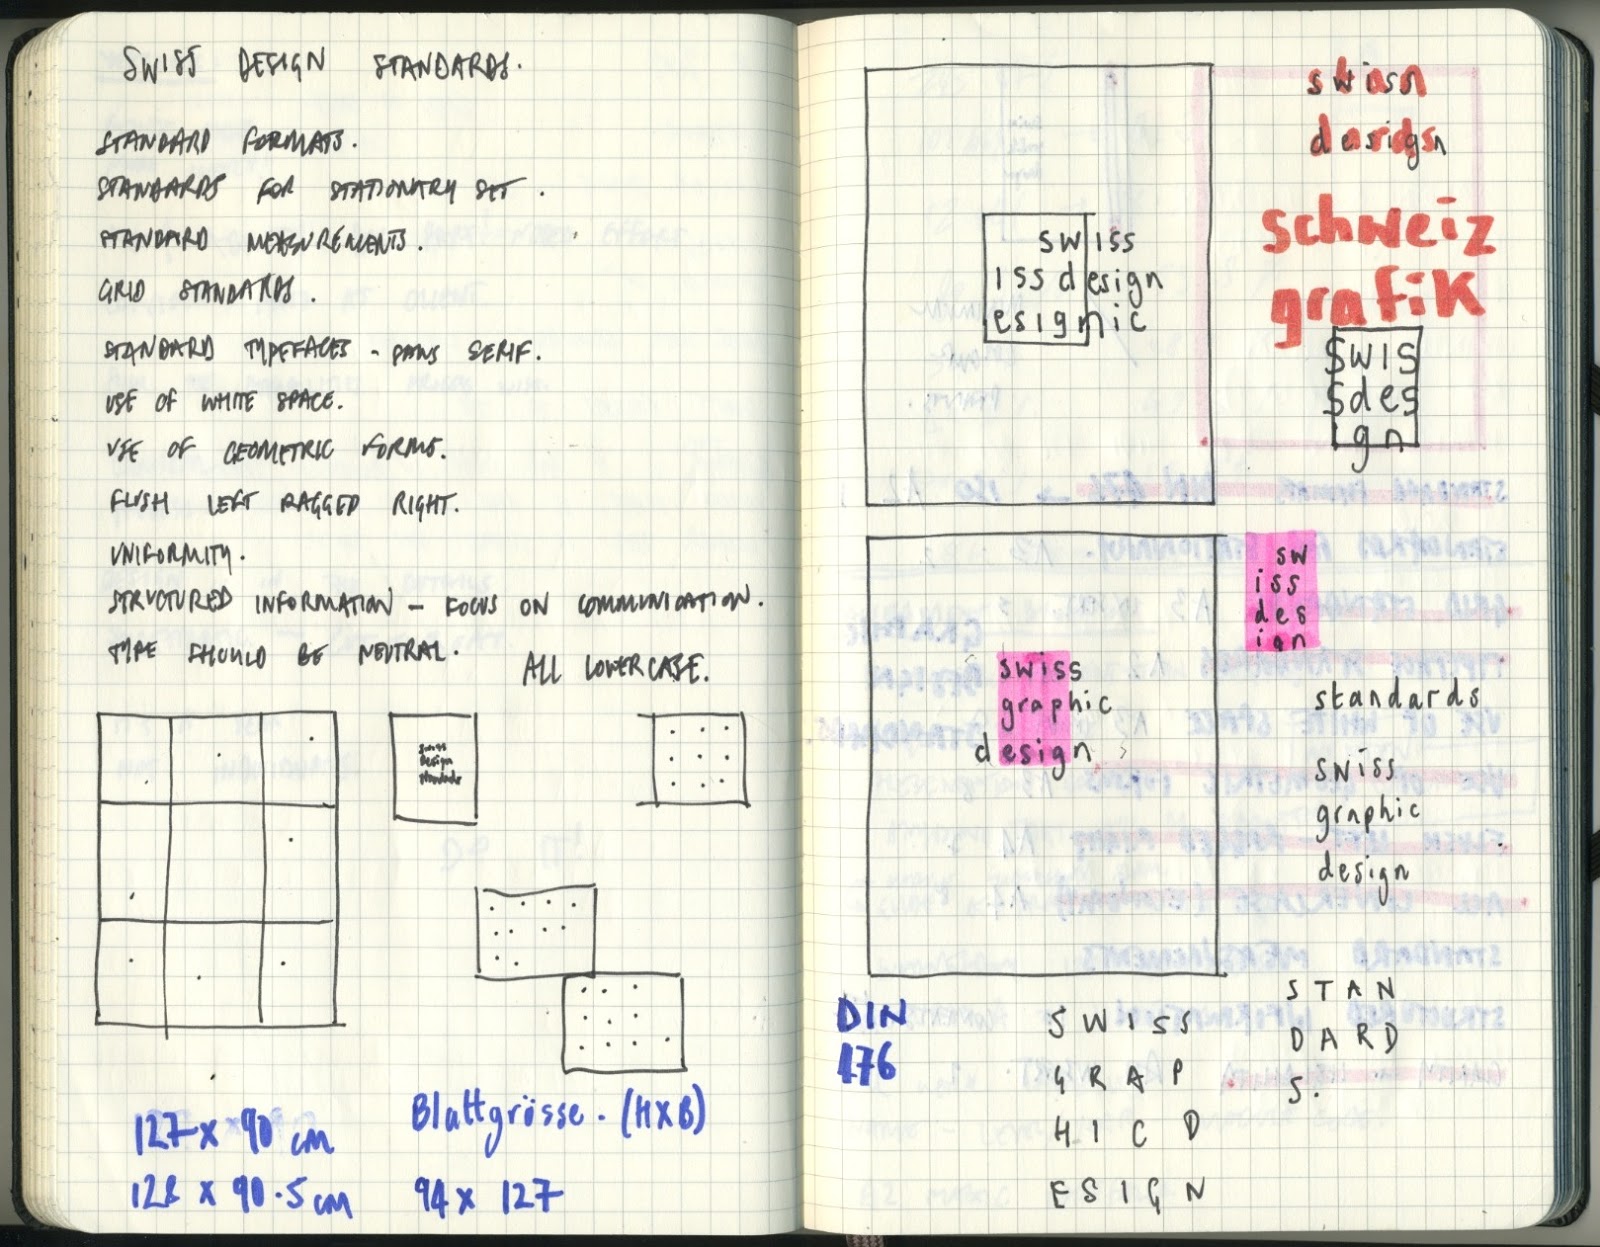 SWISS DESIGN STANDARDS.
STANDARD FORMATS.
STANDARDS FOR STATIONARY SET.
STANDARD MEASUREMENTS.
GRID STANDARDS.
STANDARD TYPEFACES - SERIF.
USE OF WHITE SPACE.
USE OF GEOMETRIC FORMS.
FLUSH LEFT RAGGED RIGHT.
UNIFORMITY.
STRUCTURED INFORMATION - FOCUS ON COMMUNICATION.
TYPE SHOULD BE NEUTRAL.
ALL LOWERCASE.
swiss
design
standards
127 x 90 cm
128 x 90.5 cm
Blattgrösse. (HXB)
94 x 127
swiss
iss design
esignic
swiss
design
schweiz
grafik
swis
sdes
gn
swiss
graphic
design
sw
iss
des
ign
standards
swiss
graphic
design
DIN
476
SWISS
GRAP
HICD
ESIGN
STAN
DARD
S.